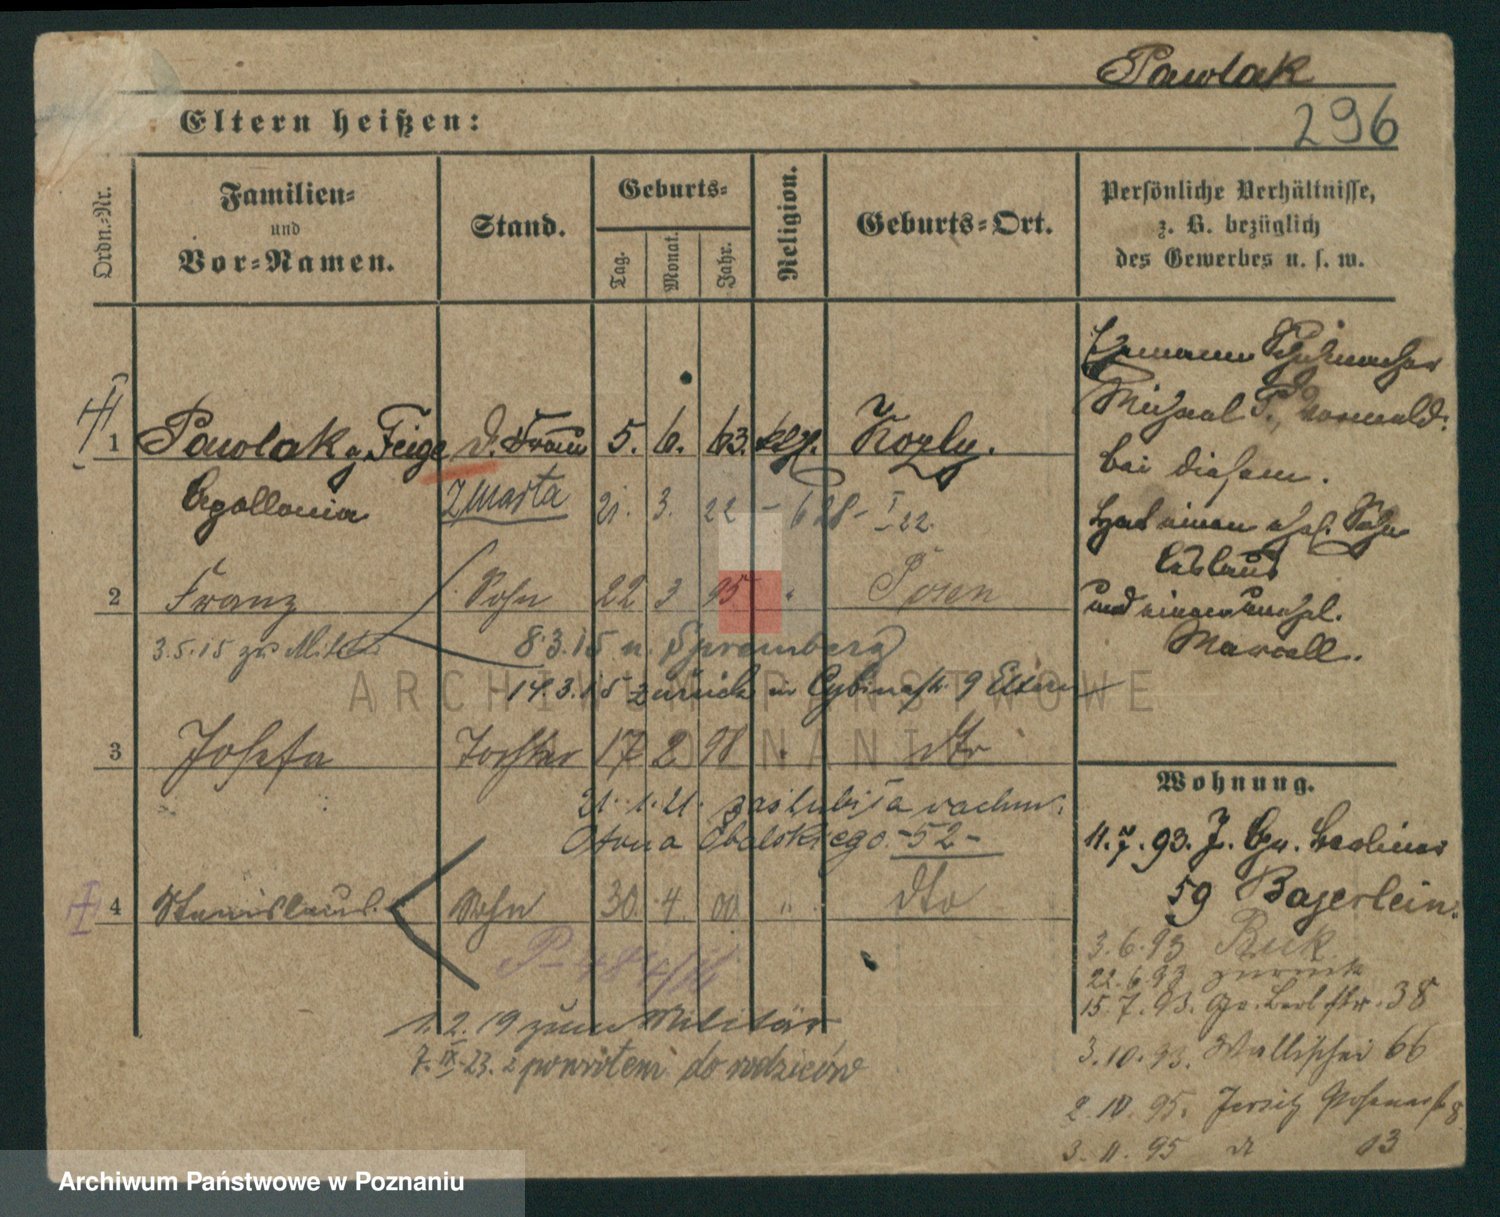 Pawlak
296
Eltern heißen:
Ordn.-Nr.
Familien-
und
Vor-Namen.
Stand.
Geburts-
Tag.
Monat.
Jahr.
Religion.
Geburts-Ort.
Persönliche Verhältnisse,
z. B. bezüglich
des Gewerbes u. s. w.
1 Pawlak g. Feige d. Frau 5. 6. 63. Kozly.
Apollonia Zmarła 21. 3. 22 - 628 - I 22.
2 Franz Sohn 22 3 95 " Posen
3.5.15 zu Milit. 8.3.15 n. Spremberg
14.3.15 zurück Cybinastr. 9 Eltern
3 Josefa Tochter 17 2 98 " dto
21.1.21. zaślubiła rachm.
Otona 52-
4 Stanislaus Sohn 30. 4. 00 " dto
1.2.19 zum Militär
7.IX.23. z powrotem do rodziców
Ehemann Schuhmacher
Michael P.
bei diesem.
Hat einen ehel. Sohn
Ladislaus
und einen unehel.
Marcell.
Wohnung.
11.7.93.
59 Bajerlein.
3.6.93 Buk
22.6.93 zurück
15.7.93. Gr. Berl.str. 38
3.10.93. Wallischei 66
2.10.95. Jersitz
3.11.95 13
ARCHIWUM PAŃSTWOWE
W POZNANIU
Archiwum Państwowe w Poznaniu